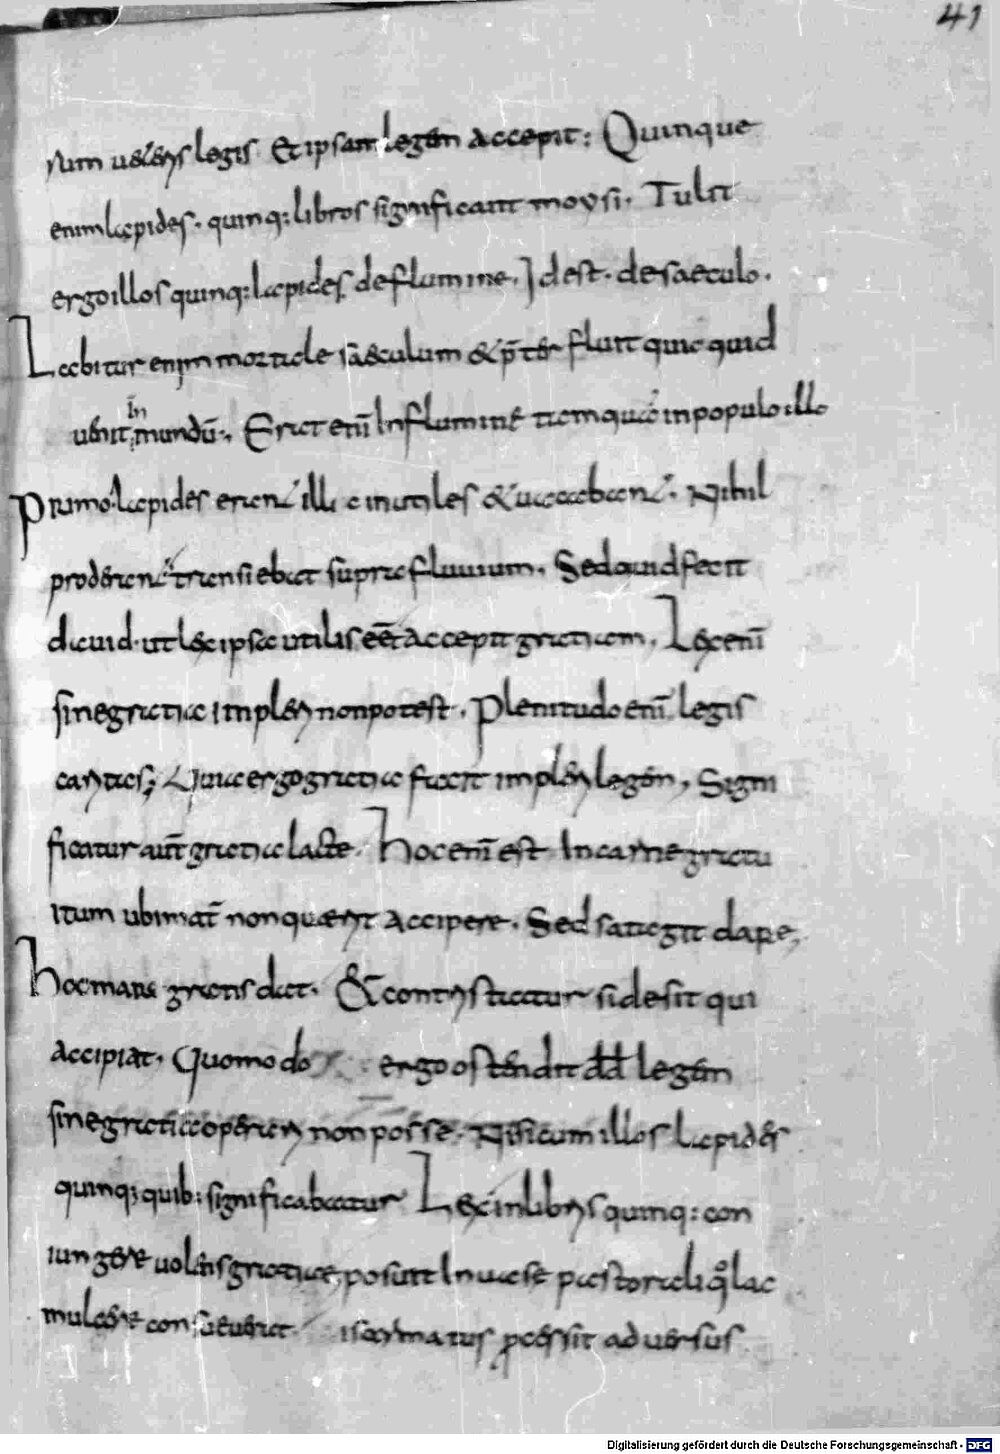 41
rum ueteris legis Et ipsam legem accepit: Quinque
enim lapides · quinq: libros significant moysi · Tulit
ergo illos quinq: lapides de flumine · Id est · de saeculo ·
Labitur enim mortale saeculum & p̄ter fluit quic quid
uenit in mundū · Erat enī In flumine tamquā in populo illo
Primo · lapides erant illi c inutiles & uacabant · Nihil
proderant transiebat supra fluuium · Sed quid fecit
dauid · ut lex ipsa utilis eēt Accepit gratiam · Lex enī
sine gratia impleri non potest · Plenitudo enī legis
caritas; Quia ergo gratia facit impleri legem, Signi
ficatur aut̄ gratia lacte · hoc enī est In carne gratu
itum ubi mat̄ non quaerit accipere · Sed satagit dare,
hoc mater gratis dat · & contristatur si desit qui
accipiat · Quomodo ergo ostendit dd̄ legem
sine gratia operari non posse · Nisi cum illos lapides
quinq; quib: significabatur Lex in libris quinq: con
iungere uolens gratiae, posuit In uase pastorali q̊ lac
mulgere consueuerat · is armatus processit aduersus
Digitalisierung gefördert durch die Deutsche Forschungsgemeinschaft - DFG